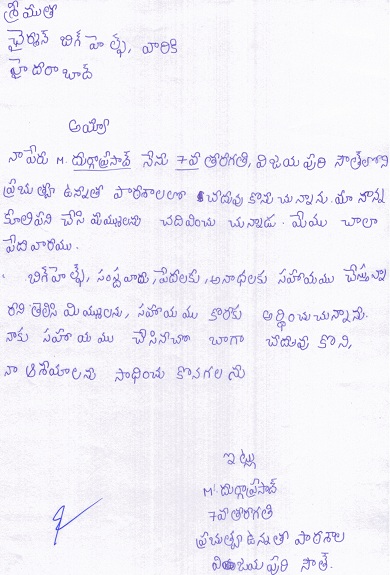 శ్రీయుత
ఛైర్మన్ బిగ్ హెల్ప్, వారికి
హైదరాబాద్
అయ్యా
నాపేరు M. దుర్గాప్రసాద్ నేను 7వ తరగతి, విజయపురి సౌత్‌లోని
ప్రభుత్వ ఉన్నత పాఠశాలలో చదువు కొను చున్నాను. మా నాన్న
కూలిపని చేసి మమ్ములను చదివించు చున్నాడు. మేము చాలా
పేదవారము.
బిగ్‌హెల్ప్, సంస్థ వారు, పేదలకు, అనాధలకు సహాయము చేస్తున్నా
రని తెలిసి మిమ్ములను, సహాయము కొరకు అర్థించుచున్నాను.
నాకు సహాయము చేసినచో బాగా చదువు కొని,
నా ఆశయాలను సాధించు కొనగలను
ఇట్లు
M. దుర్గాప్రసాద్
7వ తరగతి
ప్రభుత్వ ఉన్నత పాఠశాల
విజయపురి సౌత్.